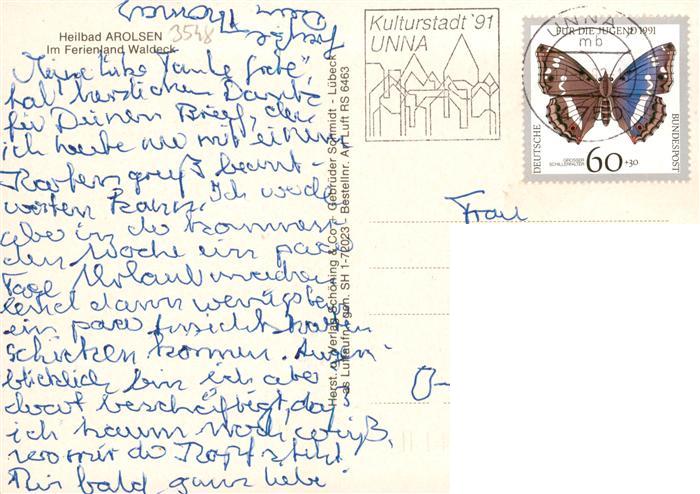 Heilbad AROLSEN
Im Ferienland Waldeck
3548
Meine liebe Tante Grete,
hab herzlichen Dank
für Deinen Brief, den
ich heute nur mit einem
Kartengruß beant-
worten kann. Ich werde
aber in der kommen-
den Woche ein paar
Tage Urlaub machen
und dann wenigstens
ein paar Ansichtskarten
schicken können. Augen-
blicklich bin ich aber
derart beschäftigt, daß
ich kaum noch weiß,
wo mir der Kopf steht.
Bis bald, ganz liebe
Grüße
Dein Thomas
Herst. u. Verlag Schöning & Co + Gebrüder Schmidt - Lübeck
as Luftaufn. gen. SH 1-72023 - Bestellnr. Ar Luft RS 6463
Kulturstadt '91
UNNA
UNNA
mb
FÜR DIE JUGEND 1991
DEUTSCHE BUNDESPOST
GROSSER
SCHILLERFALTER
60+30
Frau
O-